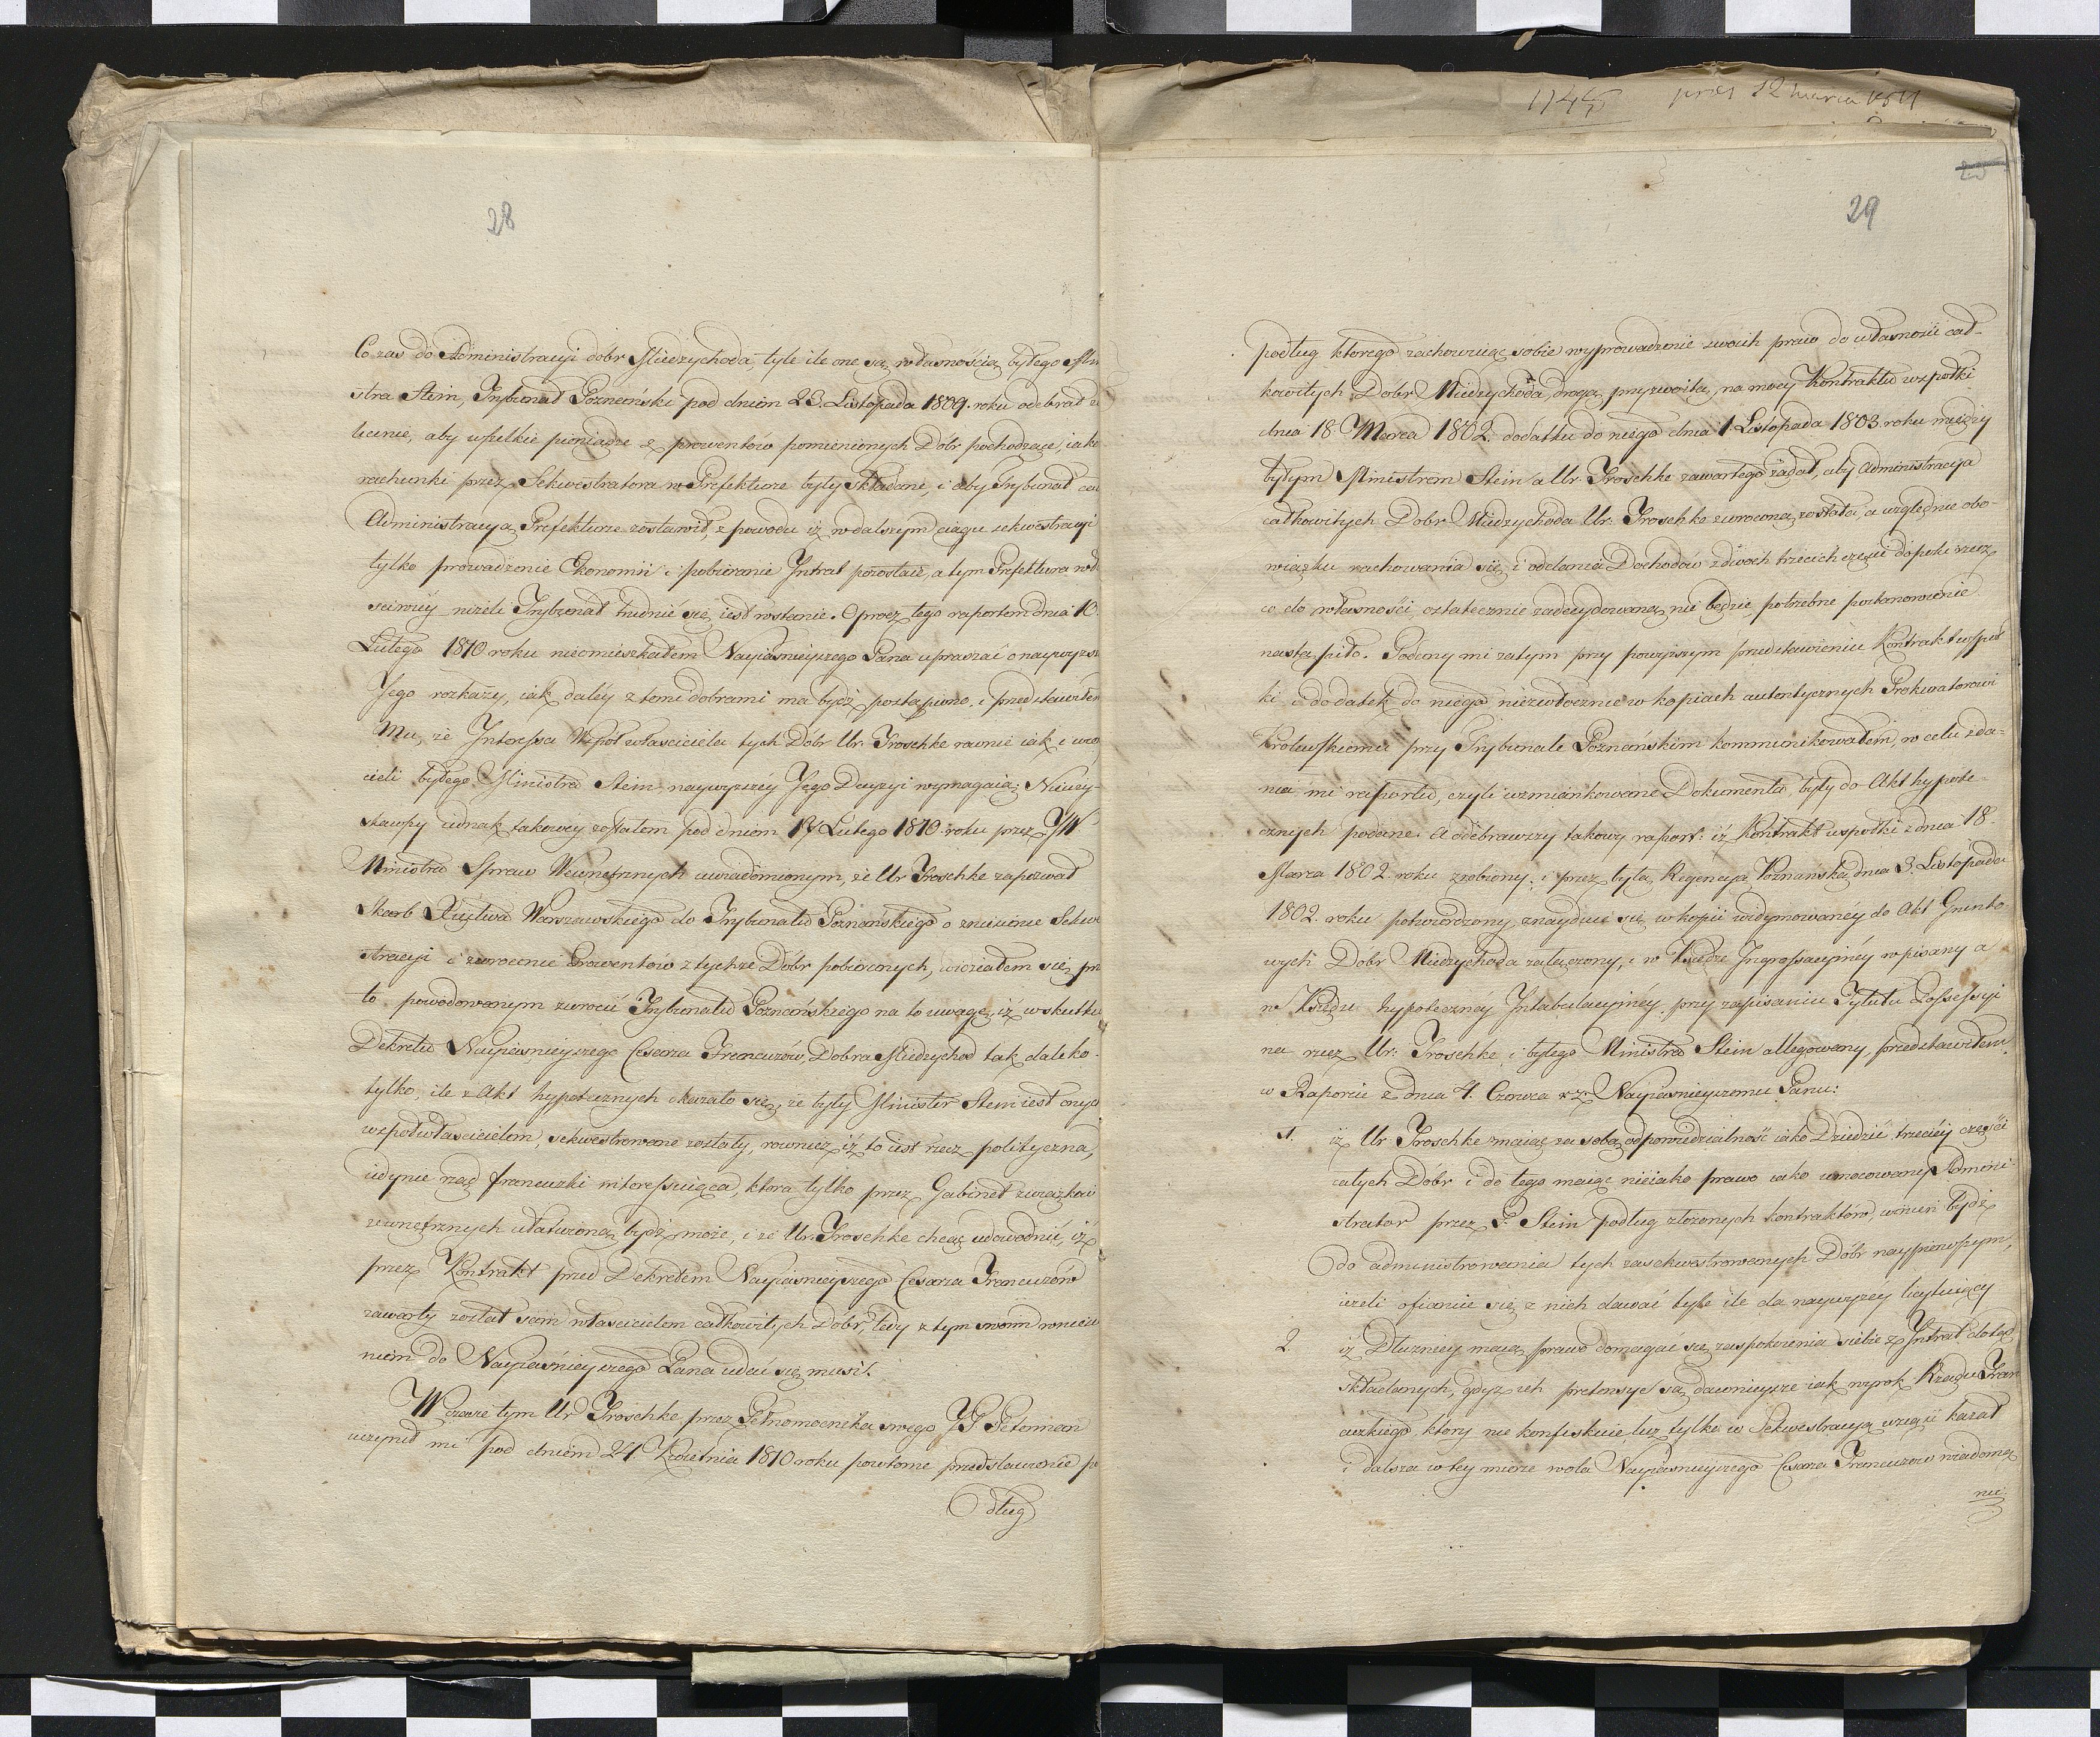 28
Co zas do Administracyi dobr Międzychoda, tyle ile one są własnością byłego Mini
stra Stein, Trybunał Poznański pod dniem 23. Listopada 1809. roku odebrał
lecenie, aby wszelkie pieniądze z prowentow pomienionych Dobr pochodzące, iako
rachunki przez Sekwestratora w Prefekturze były składane, i aby Trybunał
Administracyą Prefekturze zostawił, z powodu iż w dalszym ciągu sekwestracyi
tylko prowadzenie Ekonomii i pobieranie Intrat pozostaie, a tym Prefektura
sciwiey niżeli Trybunał trudnić się iest wstanie. Oprocz tego raportem dnia 10.
Lutego 1810 roku nieomieszkałem Nayiaśnieyszego Pana upraszać o naywyzsze
Jego rozkazy, iak daley z temi dobrami ma bydź postąpiono, i przedstawiłem
Mu, że Interessa Wspoł własciciela tych Dobr Ur. Troschke rownie iak i wie
cieli byłego Ministra Stein naywyzszéy Jego Decyzyi wymagaią; Niwéy
stawszy iednak takowey zostałem pod dniem 17 Lutego 1810. roku przez JW.
Ministra Spraw Wewnętrznych uwiadomionym, że Ur Troschke zapozwał
Skarb Xięstwa Warszawskiego do Trybunału Poznańskiego o zniesienie Sekwe
stracyi i zwrocenie Prowentow z tychże Dóbr pobieranych, widziałem się
to powodowanym zwrocić Trybunału Poznańskiego na to uwagę, iż w skutku
Dekretu Nayiaśnieyszego Cesarza Francuzów, Dobra Międzychod tak daleko
tylko, ile z Akt hypotecznych okazało się, że były Minister Stein iest onych
wspołwłascicielem, sekwestrowane zostały, rownież iż to iest rzecz polityczna,
iedynie rząd francuzki interessuiąca, ktora tylko przez Gabinet związkow
zewnętrznych ułatwioną bydź może, i że Ur. Troschke chcąc udowodnić, iż
przez Kontrakt przed Dekretem Nayiaśnieyszego Cesarza Francuzów
zawarty został sam włascicielem całkowitych Dobr, tedy z tym swoim wniesie
niem do Nayiaśnieyszego Pana udać się musi.
W czasie tym Ur Troschke przez Pełnomocnika swego JP Peterman
uczynił mi pod dniem 24. Kwietnia 1810 roku powtorne przedstawienie po
dług
1745 przes 12 marca 1811
29
podług ktorego zachowuiąc sobie wyprowadzenie swoich praw do własności cał-
kowitych Dóbr Międzychoda, drogą przyzwoitą, na mocy Kontraktu wspołki
dnia 18 Marca 1802. dodatku do niego dnia 1 Listopada 1803. roku między
byłym Ministrem Stein a Ur. Troschke zawartego żądał, aby Administracya
całkowitych Dobr Międzychoda Ur. Troschke zwrocona, została, a względnie obo-
wiązku rachowania się i oddania Dochodów z dwoch trzecich części dopoki rzecz
co do własności ostatecznie zadecydowaną nie będzie potrzebne postanowienie
nastąpiło. Podany mi zatym przy powyższym przedstawieniu Kontrakt wspoł
ki i dodatek do niego niezwłocznie w kopiach autentycznych Prokuratorowi
Krolewskiemu przy Trybunale Poznańskim kommunikowałem, w celu zda-
nia mi raportu, czyli wzmiankowane Dokumenta, były do Akt hypote-
cznych podane. A odebrawszy takowy raport: iż Kontrakt wspołki z dnia 18.
Marca 1802. roku zrobiony, i przez byłą Regencyą Poznańską dnia 3. Listopada
1802. roku potwierdzony, znayduie się w kopii widymowanéy do Akt Grunto
wych Dóbr Międzychoda załączony, i w Księdze Ingrossacyinéy wpisany a
w Księdze hypotecznéy Intabulacyinéy, przy zapisaniu Tytułu Possessyi
na rzecz Ur. Troschke i byłego Ministra Stein allegowany, przedstawiłem
w Raporcie z dnia 4. Czerwca rz. Nayiaśnieyszemu Panu:
1. iż Ur Troschke maiąc za sobą odpowiedzialność iako Dziedzic trzeciéy części
całych Dóbr i do tego maiąc nieiako prawo iako umocowany Admini-
strator przez P. Stein podług złożonych kontraktów, winien bydź
do administrowania tych zasekwestrowanych Dóbr naypierwszym,
ieżeli ofiaruie się z nich dawać tyle ile da naywyzey licytuiący
2 iż Dłużnicy maią prawo domagać się zaspokoienia siebie z Intrat dotąd
składanych, gdyż ich pretensye są dawnieysze iak wyrok Rządu Fran
cuzkiego, ktory nie konfiskuie, lecz tylko w Sekwestracyą wziąść kazał
i dalsza w tey mierze wola Nayiaśnieyszego Cesarza Francuzow wiadomą
nie